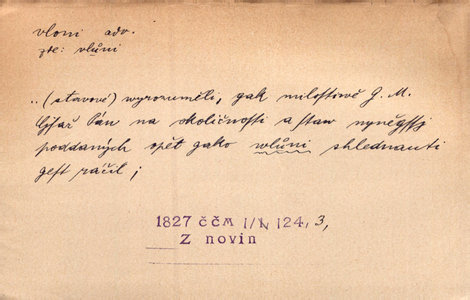 vloni adv.
zte: vlůni
„(stavové) wyrozuměli, gak milostiwě G. M.
Cýsař Pán na okoličnosti a staw nyněgssj
poddaných opět gako wlůni shlednauti
gest ráčil;
1827 ČČM I/1, 124, 3,
Z novin